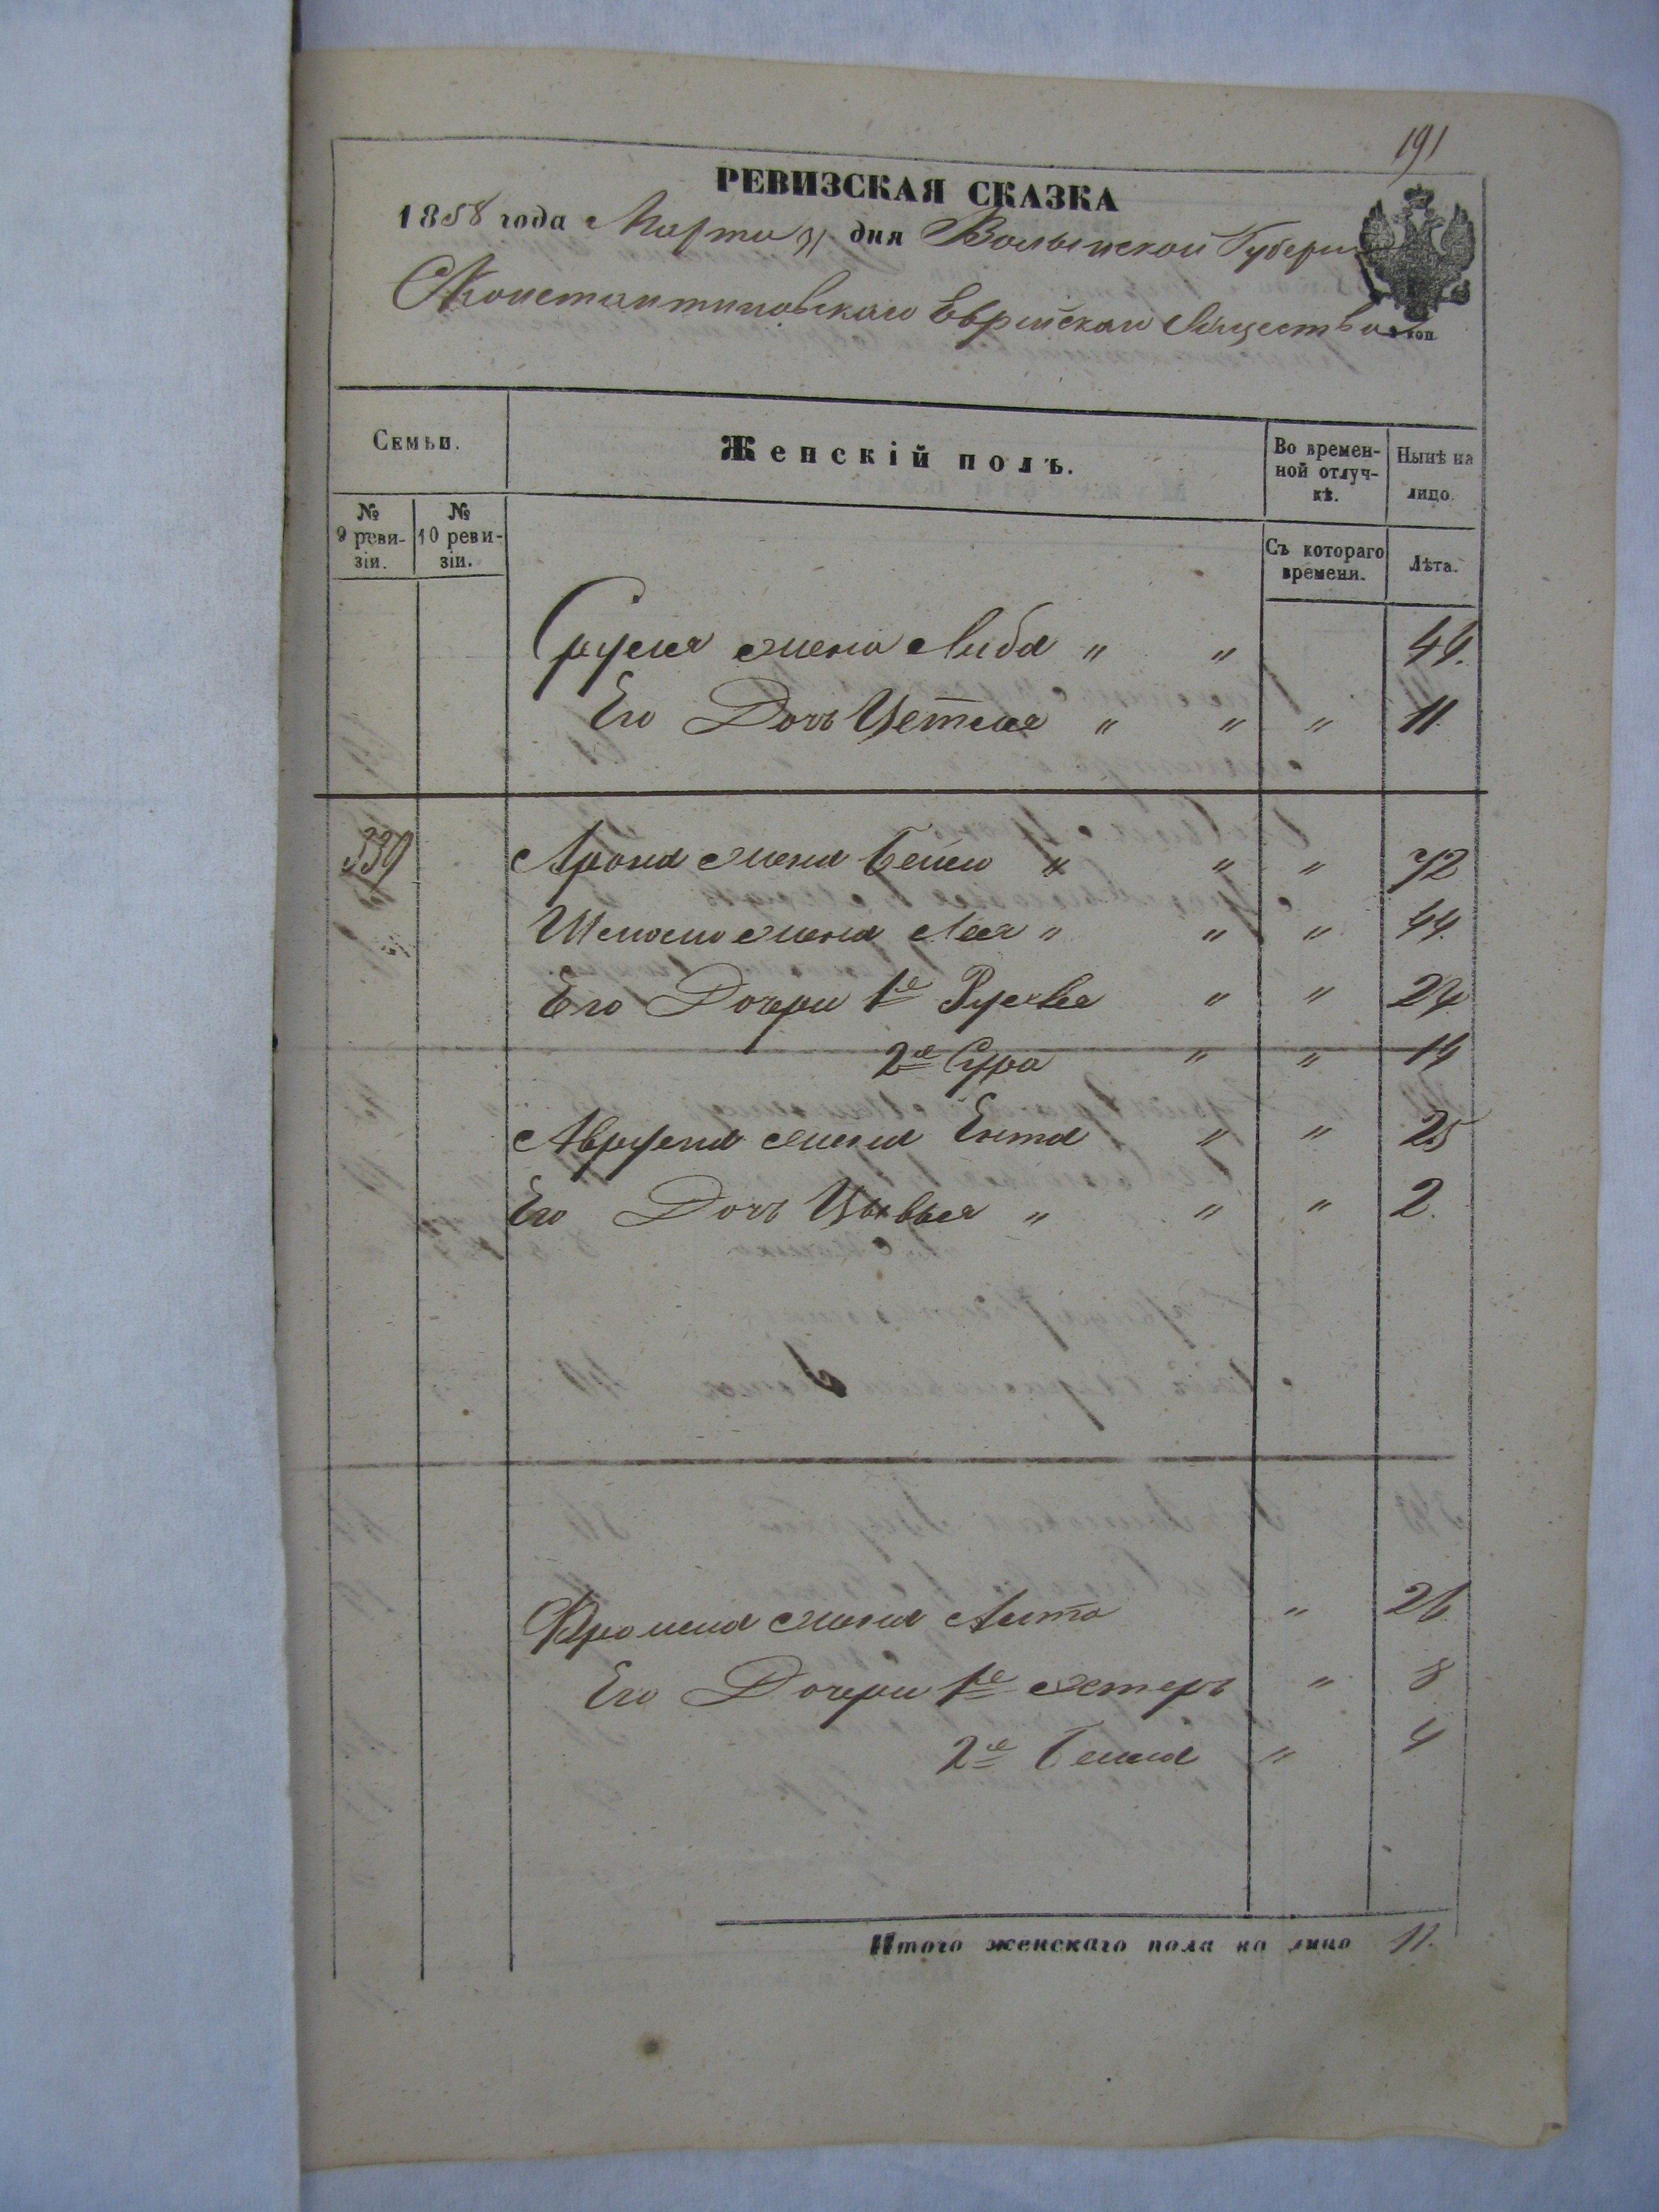 191
РЕВИЗСКАЯ СКАЗКА
1858 года Марта 31 дня Волынской Губернии
Староконстантиновскаго Еврейскаго Общества
2 коп
Семьи.
Женскій полъ.
Во времен-
ной отлуч-
кѣ.
Нынѣ на
лицо.
№
9 реви-
зіи.
№
10 реви-
зіи.
Съ котораго
времени.
Лѣта.
Сруля жена Либа " " 44.
Его Дочь Цетля " " " 11.
339 Арона жена Бейла " " " 72
Шлемы жена Лея " " " 44.
Его Дочери 1я Рухля " " 24
2я Сура " " 14
Аврума жена Ента " " 25
Его Дочь Цывья " " " 2.
жена " 26
Его Дочери 1я Эстеръ " 8
2я " 4
Итого женскаго пола на лицо 11.